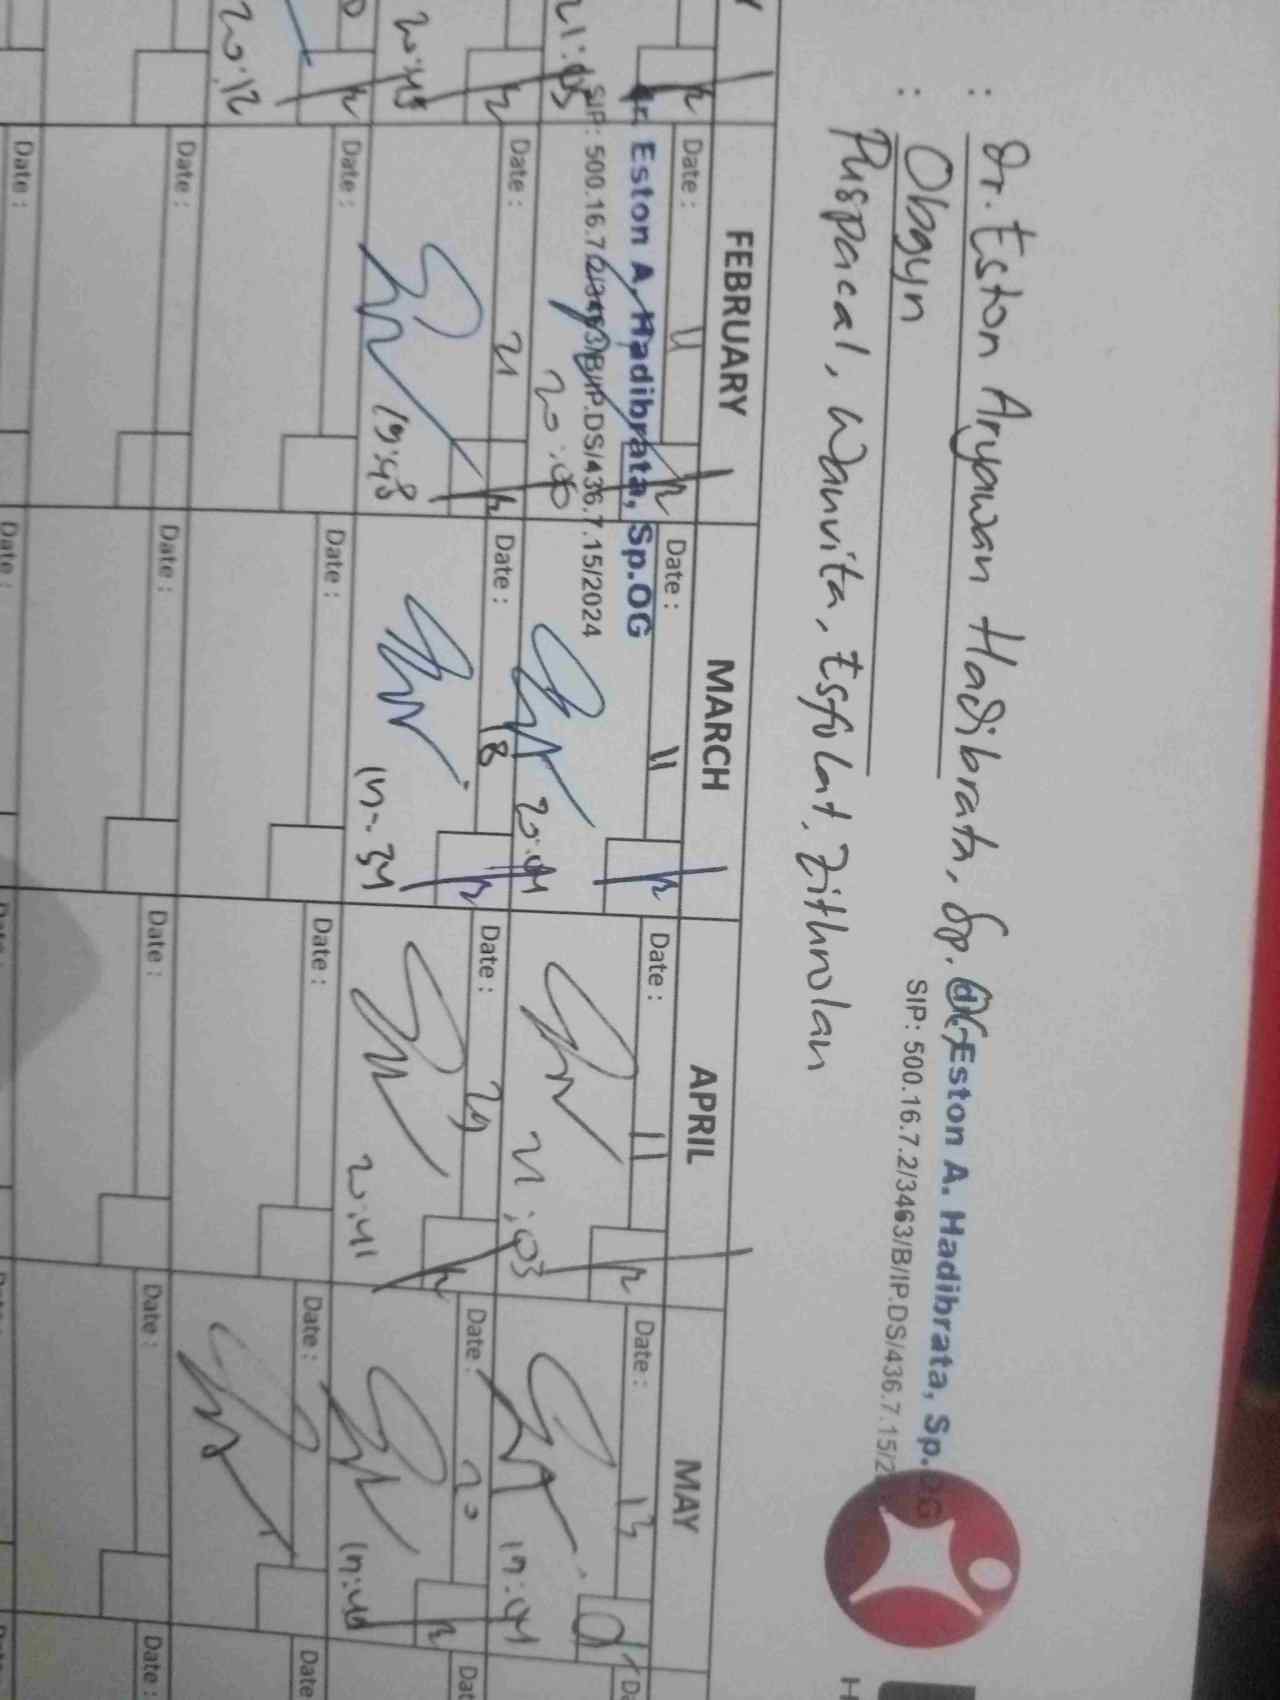 : dr. Eston Aryawan Hadibrata, Sp.OG
dr. Eston A. Hadibrata, Sp.OG
SIP: 500.16.7.2/3463/B/IP.DS/436.7.15/2
: Obgyn
Puspacal, Wanvita, Esfolat, Zithrolan
FEBRUARY MARCH APRIL MAY
Date : 11 Date : 11 Date : 11 Date : 13
dr. Eston A. Hadibrata, Sp.OG
SIP: 500.16.7.2/3463/B/IP.DS/436.7.15/2024
21:05 20:00 20:04 21:03 17:04
Date : 21 Date : 18 Date : 29 Date : 20
20:45 19:48 17:34 20:41
Date : Date : Date : Date : Date
20:12
Date : Date : Date : Date : Date :
Date : Date :